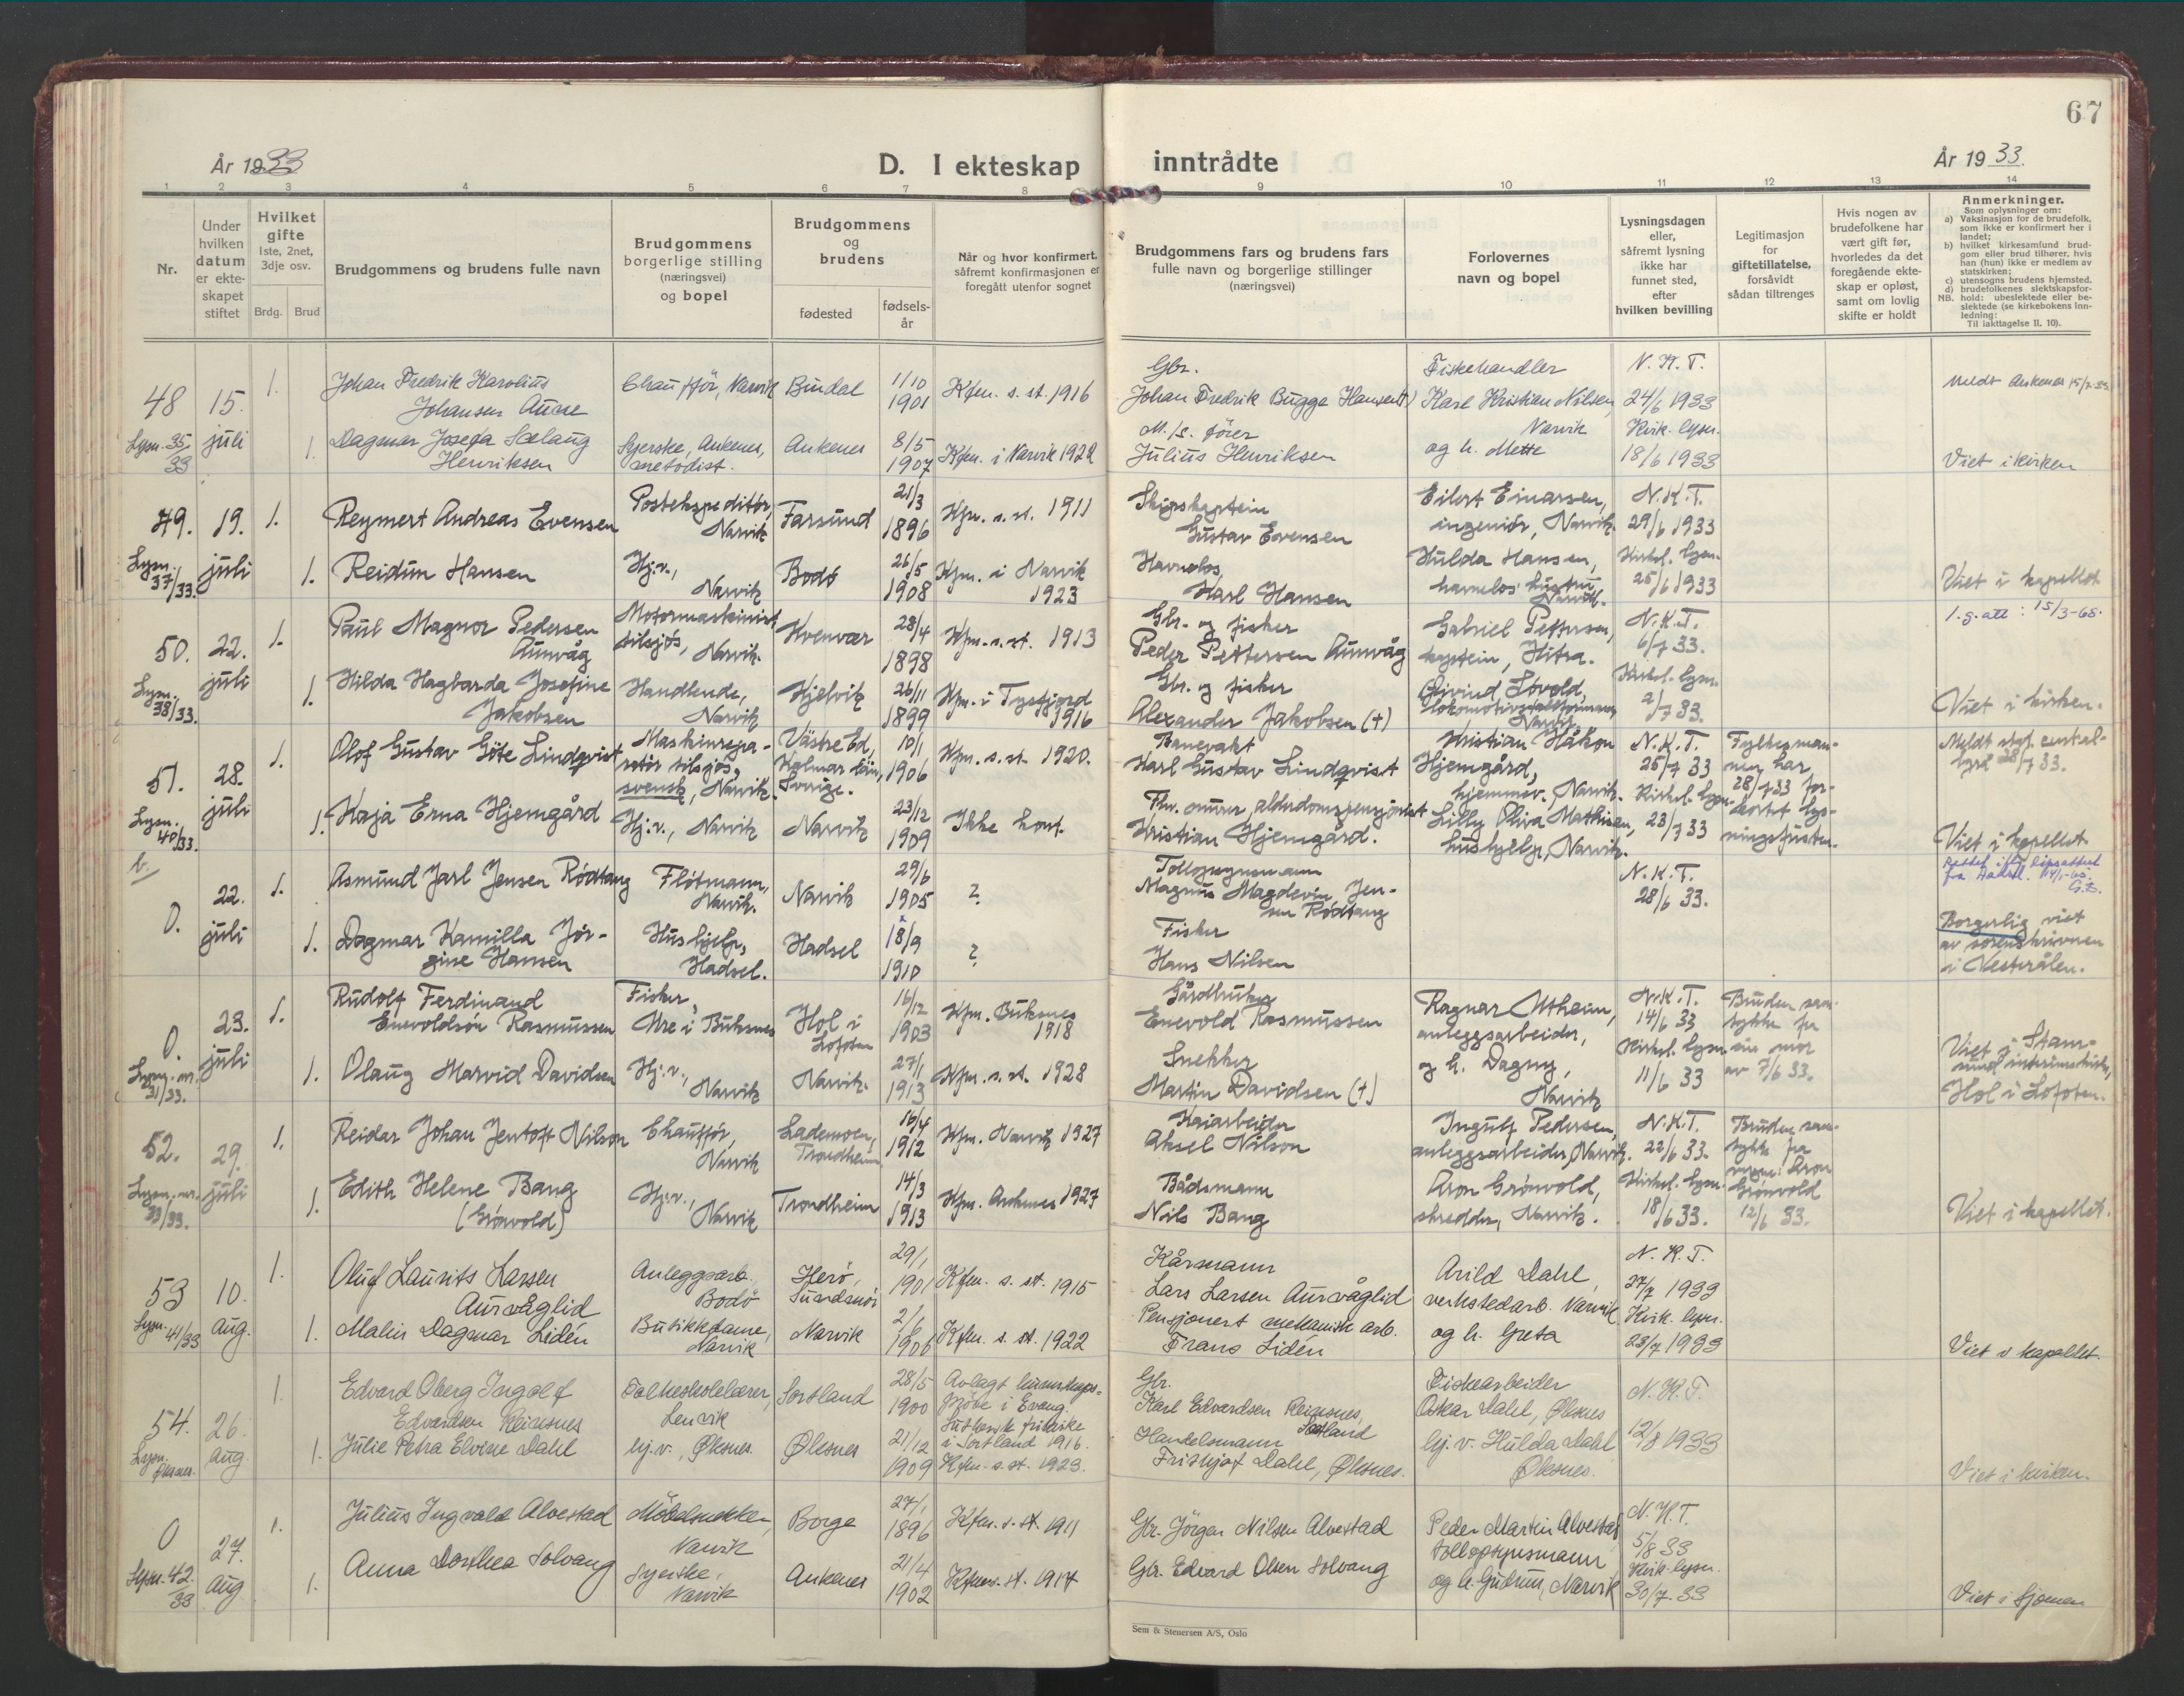 67
År 1933
D. I ekteskap inntrådte
År 1933.
1 2 3 4 5 6 7 8 9 10 11 12 13 14
Nr.
Under hvilken datum er ekteskapet stiftet
Hvilket gifte
1ste, 2net, 3dje osv.
Brdg. Brud
Brudgommens og brudens fulle navn
Brudgommens borgerlige stilling (næringsvei) og bopel
Brudgommens og brudens
fødested
fødselsår
Når og hvor konfirmert, såfremt konfirmasjonen er foregått utenfor sognet
Brudgommens fars og brudens fars fulle navn og borgerlige stillinger (næringsvei)
Forlovernes navn og bopel
Lysningsdagen eller, såfremt lysning ikke har funnet sted, efter hvilken bevilling
Legitimasjon for giftetillatelse, forsåvidt sådan tiltrenges
Hvis nogen av brudefolkene har vært gift før, hvorledes da det foregående ekteskap er opløst, samt om lovlig skifte er holdt
Anmerkninger.
Som oplysninger om:
a) Vaksinasjon for de brudefolk, som ikke er konfirmert her i landet;
b) hvilket kirkesamfund brudgom eller brud tilhører, hvis han (hun) ikke er medlem av statskirken;
c) utensogns brudens hjemsted.
d) brudefolkenes slektskapsforhold: ubeslektede eller beslektede (se kirkebokens innledning:
NB. Til iakttagelse II. 10).
48 15. juli 1. Johan Fredrik Karolius Johansen Aune
Chauffør, Narvik Bindal 1/10 1901 Kfm. s. st. 1916
Gbr. Johan Fredrik Bugge Hansen(†)
Fiskehandler Karl Kristian Nilsen, Narvik
N. K. T. 24/6 1933
Meldt Ankenes 15/7-33
Lysn. 35/33 1. Dagmar Josefa Sælaug Henriksen
Syerske, Ankenes, metodist. Ankenes 8/5 1907 Kfm. i Narvik 1922
M./s. fører Julius Henriksen
og h. Mette
Kirk. lysn. 18/6 1933
Viet i kirken
49. 19. juli 1. Reymert Andreas Evensen
Postekspeditør, Narvik Farsund 21/3 1896 Kfm. s. st. 1911
Skipskaptein Gustav Evensen
Eilert Einarsen, ingeniør, Narvik.
N.K.T. 29/6 1933
Lysn. 37/33. 1. Reidun Hansen
Hj.v., Narvik Bodø 26/5 1908 Kfm. i Narvik 1923
Havnelos Karl Hansen
Hulda Hansen, havnelos' hustru Narvik.
Kirkel. lysn. 25/6 1933
Viet i kapellet
50. 22. juli 1. Paul Magnor Pedersen Aunvåg
Motormaskinist tilsjøs, Narvik. Kvenvær 28/4 1898 Kfm. s. st. 1913
Gbr. og fisker Peder Pettersen Aunvåg
Gabriel Pettersen, kaptein, Hitra.
N.K.T. 6/7 33.
1.g.att: 15/3-65.
Lysn. 38/33. 1. Hilda Hagbarda Josefine Jakobsen
Handlende, Narvik Kjelvik 26/11 1899 Kfm. i Tysfjord 1916
Gbr. og fisker Alexander Jakobsen (†)
Eivind Løvold, Narvik.
Kirkel. lysn. 2/7 33.
Viet i kirken.
51. 28. juli 1. Olof Gustav Göte Lindqvist
Maskinreparatør tilsjøs, svensk, Narvik. Västre Ed, Kalmar län, Sverige. 10/1 1906 Kfm. s. st. 1920.
Banevakt Karl Gustav Lindqvist
Kristian Håkon Hjemgård, hjemmev., Narvik.
N.K.T. 25/7 33
Fylkesmannen har 28/7 33 forkortet lysningsfristen.
Lysn. 40/33. 1. Kaja Erna Hjemgård
Hj.v., Narvik Narvik 23/12 1909 Ikke konf.
Fhv. murer, alderdomspensjonist Kristian Hjemgård.
Lilly Oliva Mathisen, hushjelp, Narvik.
Kirkel. lysn. 23/7 33
Viet i kapellet
0. 22. juli 1. Asmund Jarl Jensen Rødtang
Flötmann, Narvik. Narvik 29/6 1905 ?
Tollopsynsmann Magnus Magdevin Jensen Rødtang
N.K.T. 28/6 33.
1. Dagmar Kamilla Jørgine Hansen
Hushjelp, Hadsel. Hadsel 18/9 1910 ?
Fisker Hans Nilsen
Borgerlig viet av sorenskriveren i Vesterålen.
0. 23. juli 1. Rudolf Ferdinand Enevoldsøn Rasmussen
Fisker, Ure i Buksnes Hol i Lofoten 16/12 1903 Kfm. Buksnes 1918
Gårdbruker Enevold Rasmussen
Ragnar Utheim, anleggsarbeider,
N.K.T. 14/6 33
Bruden samtykke fra sin mor av 7/6 33.
Lysn. nr. 31/33. 1. Olaug Marvid Davidsen
Hj.v., Narvik Narvik. 27/1 1913 Kfm. s. st. 1928
Snekker Martin Davidsen (†)
og h. Dagny, Narvik
Kirkel. lysn. 11/6 33
Viet i Stamsund interimskirke, Hol i Lofoten.
52. 29. juli 1. Reidar Johan Jentoft Nilson
Chauffør, Narvik Lademoen, Trondheim 16/4 1912 Kfm. Narvik 1927
Kaiarbeider Aksel Nilson
Ingulf Pedersen, anleggsarbeider, Narvik.
N.K.T. 22/6 33.
Bruden samtykke fra Aron Grönvold 12/6 33.
Lysn. nr. 33/33. 1. Edith Helene Bang (Grönvold)
Hj.v., Narvik Trondheim 14/3 1913 Kfm. Ankenes 1927
Båtsmann Nils Bang
Aron Grönvold, skredder, Narvik.
Kirkel. lysn. 18/6 33.
Viet i kapellet.
53 10. aug. 1. Oluf Laurits Larsen Aurvåglid
Anleggsarb. Bodö Herö, Sundsmör 29/1 1901 Kfm. s. st. 1915
Kårmann Lars Larsen Aurvåglid
Arild Dahl, verkstedarb. Narvik
N. K. T. 27/7 1933
Lysn. 41/33 1. Malin Dagmar Lidén
Butikkdame, Narvik Narvik 2/6 1906 Kfm. s. st. 1922
Pensjonert mekanisk arb. Frans Lidén
og h. Greta
Kirk. lysn. 23/7 1933
Viet i kapellet.
54. 26. aug. 1. Edvard Oberg Ingolf Edvardsen Reinsnes
Folkeskolelærer, Lenvik Sortland 28/5 1900 Avlagt kunnskapsprøve i Evang. Luthersk frikirke i Sortland 1916.
Gbr. Karl Edvardsen Reinsnes, Sortland
Fiskearbeider Oskar Dahl, Øksnes
N. K. T. 12/8 1933
Lysn. Øksnes. 1. Julie Petra Elvine Dahl
hj.v., Øksnes. Øksnes 21/12 1909 Kfm. s. st. 1923.
Handelsmann Frithjof Dahl, Øksnes.
hj. v. Hulda Dahl Øksnes.
Viet i kirken.
0 27. aug 1. Julius Ingvald Alvestad
Möbelsnekker, Narvik Borge 27/1 1896 Kfm. s. st. 1911
Gbr. Jörgen Nilsen Alvestad
Peder Martin Alvestad, tollopsynsmann
N. K. T. 5/8 33
Lysn. 42/33 1. Anna Dorthea Solvang
Syerske, Narvik Ankenes 21/4 1902 Kfm. s. st. 1917
Gbr. Edvard Olsen Solvang
og h. Gudrun, Narvik
Kirk. lysn. 30/7.33
Viet i Sjomen
Sem & Stenersen A/S, Oslo